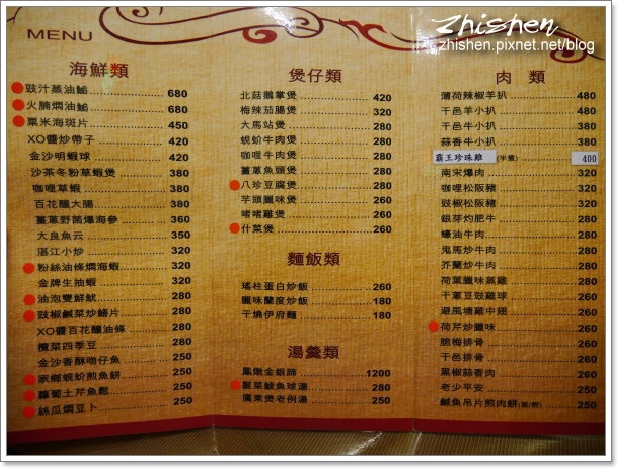 zhishen
zhishen.pixnet.net/blog
MENU
海鮮類
豉汁蒸油鯭 680
火腩燜油鯭 680
粟米海斑片 450
XO醬炒帶子 420
金沙明蝦球 420
沙茶冬粉草蝦煲 380
咖哩草蝦 380
百花釀大腸 380
薑蔥野菌爆海參 360
大良魚云 350
湛江小炒 320
粉絲油條燜海蝦 320
金牌生抽蝦 320
油泡雙鮮魷 280
豉椒鹹菜炒鱔片 280
XO醬百花釀油條 280
欖菜四季豆 280
金沙香酥吻仔魚 250
家鄉蜆蚧煎魚餅 250
蘿蔔土芹魚鬆 250
絲瓜燜豆卜 250
煲仔類
北菇鵝掌煲 420
梅辣茄腸煲 320
大馬站煲 280
蜆蚧牛肉煲 280
咖哩牛肉煲 280
薑蔥魚頭煲 280
八珍豆腐煲 280
芋頭臘味煲 260
啫啫雞煲 260
什菜煲 260
麵飯類
瑤柱蛋白炒飯 260
臘味蘭度炒飯 180
干燒伊府麵 180
湯羹類
鳳燉金銀蹄 1200
髮菜鯪魚球湯 280
廣東煲老例湯 250
肉類
薄荷辣椒羊扒 480
干邑羊小扒 480
干邑牛小扒 480
蒜香牛小扒 480
霸王珍珠雞(半隻) 400
南宋爆肉 320
咖哩松阪豬 320
豉椒松阪豬 320
銀芽灼肥牛 280
蠔油牛肉 280
鬼馬炒牛肉 280
芥蘭炒牛肉 280
荷葉臘味蒸雞 280
干蔥豆豉雞球 280
避風塘雞中翅 280
荷芹炒臘味 260
脆梅排骨 260
干邑排骨 260
黑椒蒜香肉 260
老少平安 250
鹹魚吊片煎肉餅(蒸/煎) 250